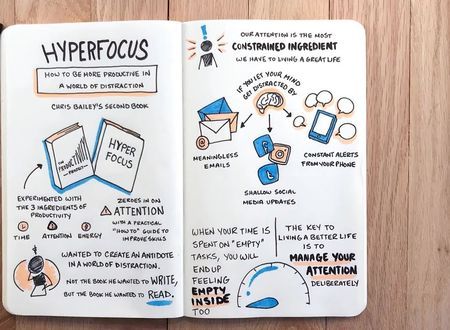 HYPERFOCUS
HOW TO BE MORE PRODUCTIVE IN
A WORLD OF DISTRACTION
CHRIS BAILEY'S SECOND BOOK
THE
PRODUCTIVITY
PROJECT
HYPER
FOCUS
EXPERIMENTED WITH
THE 3 INGREDIENTS OF
PRODUCTIVITY
TIME ATTENTION ENERGY
ZEROES IN ON
ATTENTION
WITH A PRACTICAL
"HOW TO" GUIDE TO
IMPROVE SKILLS
WANTED TO CREATE AN ANTIDOTE
IN A WORLD OF DISTRACTION.
NOT THE BOOK HE WANTED TO WRITE,
BUT THE BOOK HE WANTED TO READ.
OUR ATTENTION IS THE MOST
CONSTRAINED INGREDIENT
WE HAVE TO LIVING A GREAT LIFE
IF YOU LET YOUR MIND
GET DISTRACTED BY
MEANINGLESS
EMAILS
CONSTANT ALERTS
FROM YOUR PHONE
SHALLOW SOCIAL
MEDIA UPDATES
WHEN YOUR TIME IS
SPENT ON "EMPTY"
TASKS, YOU WILL
END UP
FEELING
EMPTY
INSIDE
TOO
THE KEY TO
LIVING A BETTER LIFE
IS TO
MANAGE YOUR
ATTENTION
DELIBERATELY